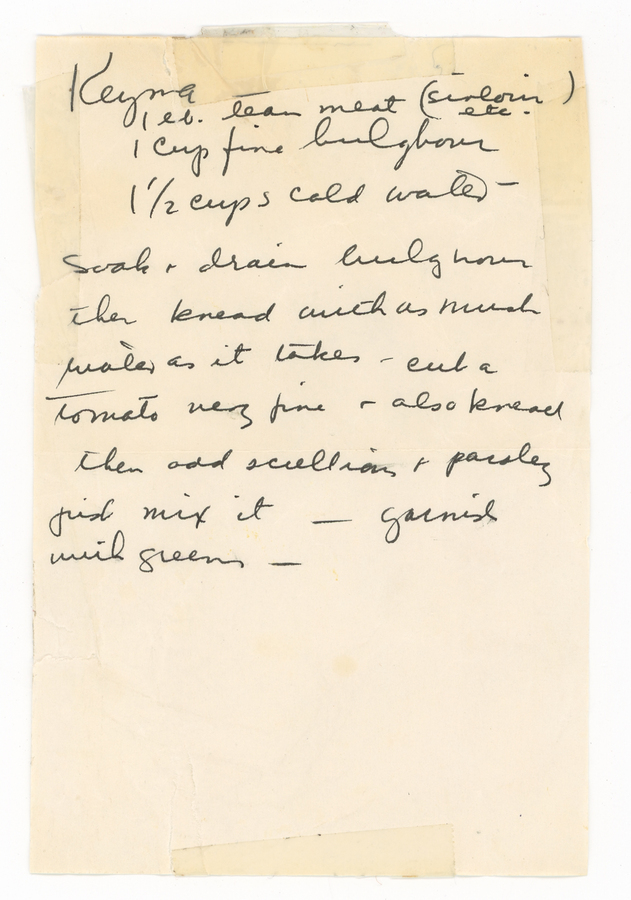 Keyma
1 lb. lean meat (sirloin etc.)
1 cup fine bulghour
1 1/2 cups cold water
Soak + drain bulghour
then knead with as much
water as it takes - cut a
tomato very fine + also knead
then add scallions + parsley
just mix it — garnish
with greens —